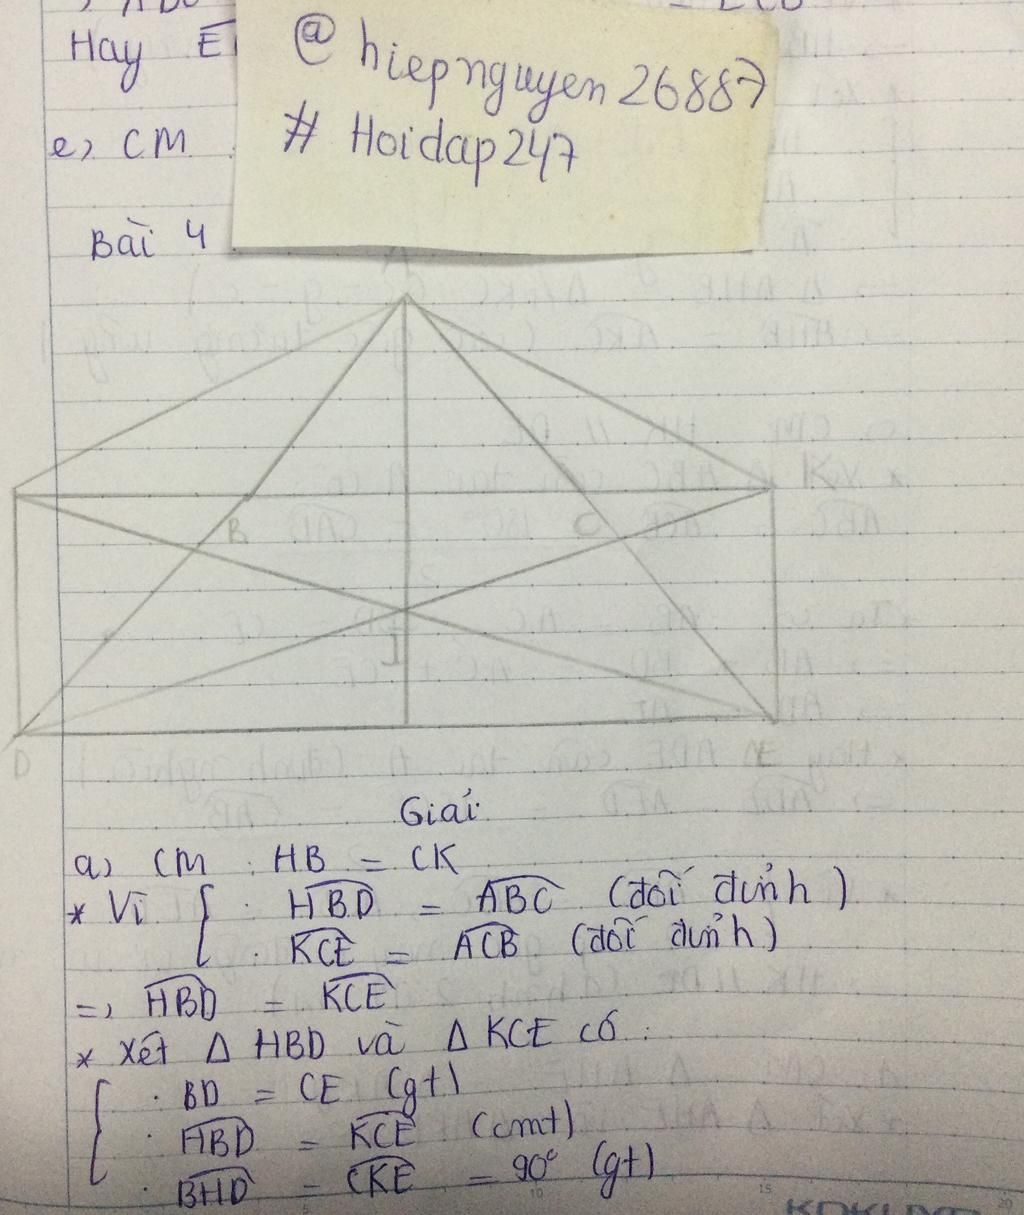 Hay
@ hiepnguyen26887
# Hoidap247
e, CM
Bài 4
B C
I
D E
Giải
a, CM : HB = CK
* Vì { . HBD = ABC (đối đỉnh)
. KCE = ACB (đối đỉnh)
=> HBD = KCE
* Xét Δ HBD và Δ KCE có :
{ . BD = CE (gt)
. HBD = KCE (cmt)
. BHD = CKE = 90° (gt)